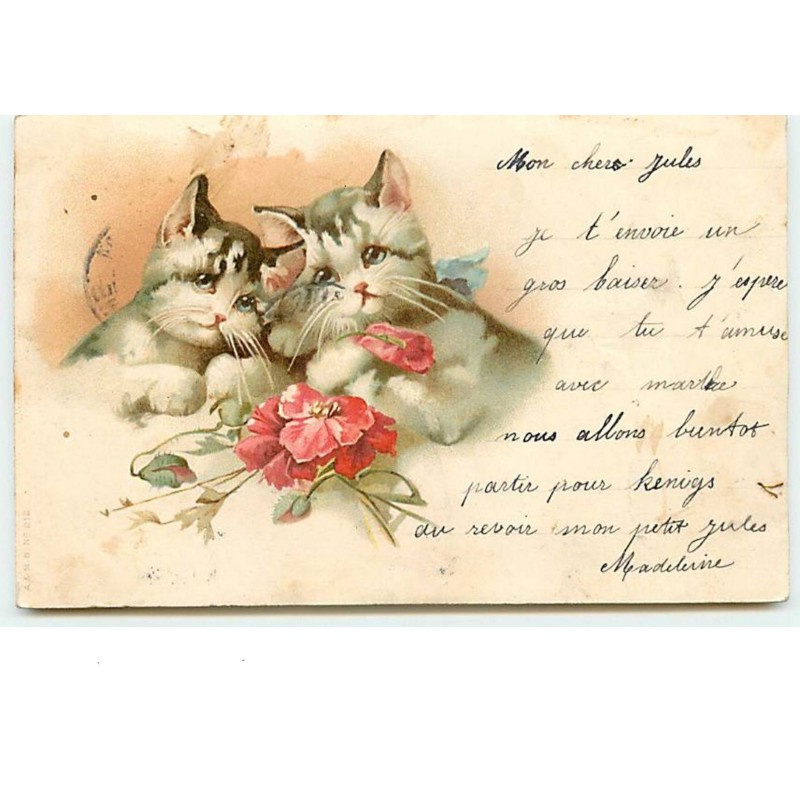 Mon cher Jules
je t'envoie un
gros baiser. j'espere
que tu t'amuse
avec marthe
nous allons buntot
partir pour kenigs
au revoir mon petit jules
Madeleine